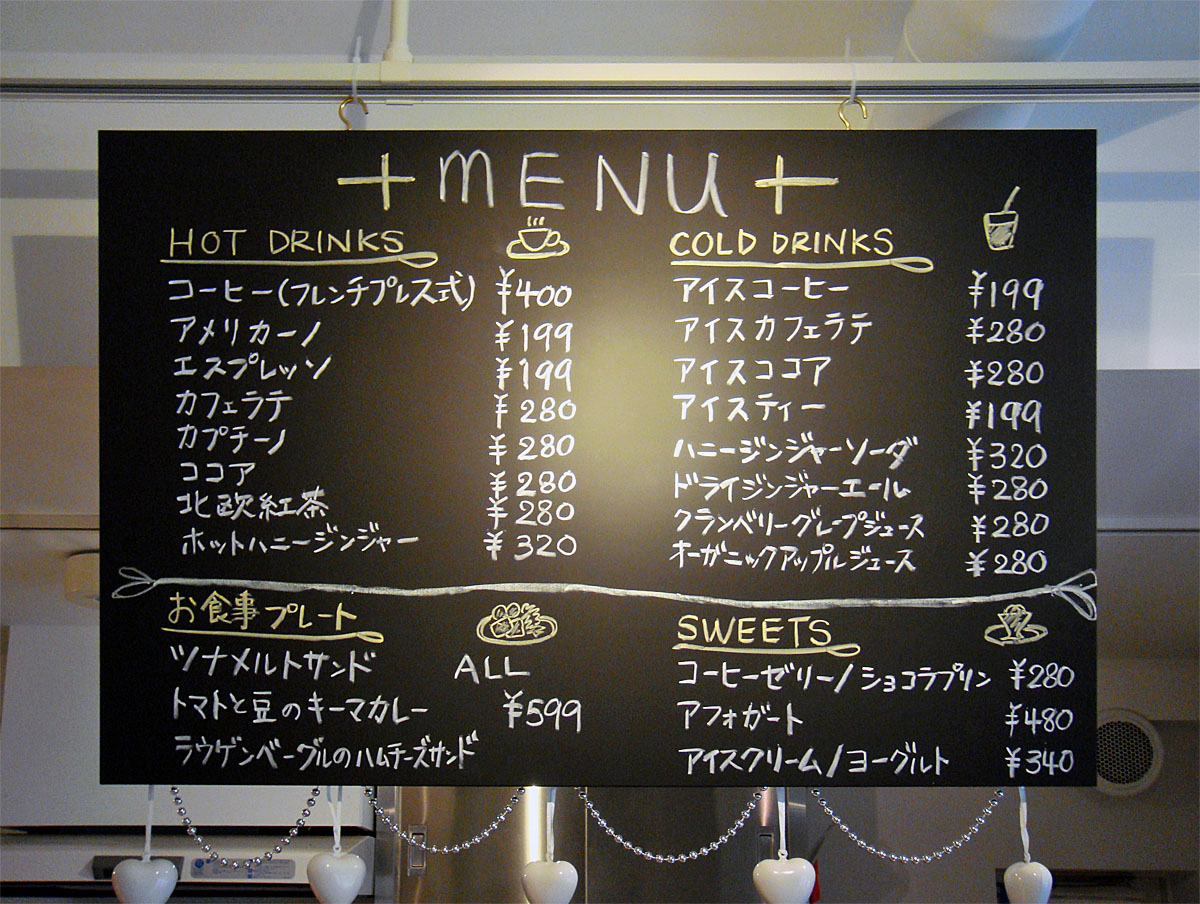 + MENU +
HOT DRINKS
コーヒー(フレンチプレス式) ¥400
アメリカーノ ¥199
エスプレッソ ¥199
カフェラテ ¥280
カプチーノ ¥280
ココア ¥280
北欧紅茶 ¥280
ホットハニージンジャー ¥320
COLD DRINKS
アイスコーヒー ¥199
アイスカフェラテ ¥280
アイスココア ¥280
アイスティー ¥199
ハニージンジャーソーダ ¥320
ドライジンジャーエール ¥280
クランベリーグレープジュース ¥280
オーガニックアップルジュース ¥280
お食事プレート
ツナメルトサンド ALL
トマトと豆のキーマカレー ¥599
ラウゲンベーグルのハムチーズサンド
SWEETS
コーヒーゼリー/ショコラプリン ¥280
アフォガート ¥480
アイスクリーム/ヨーグルト ¥340